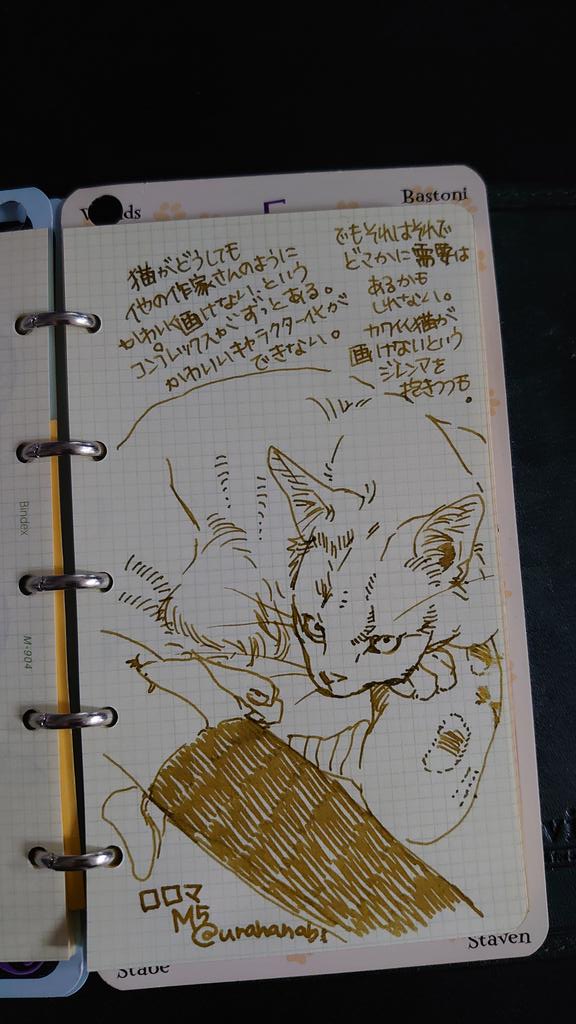 Bastoni
猫がどうしても
他の作家さんのように
かわいく画けないという
コンプレックスがずっとある。
かわいいキャラクター化が
できない。
でもそれはそれで
どこかに需要は
あるかも
しれない。
カワイイ猫が
画けないという
ジレンマを
抱きつつも。
Bindex
M-904
ロロマ
M5
@urahanabi
Stäbe
Staven